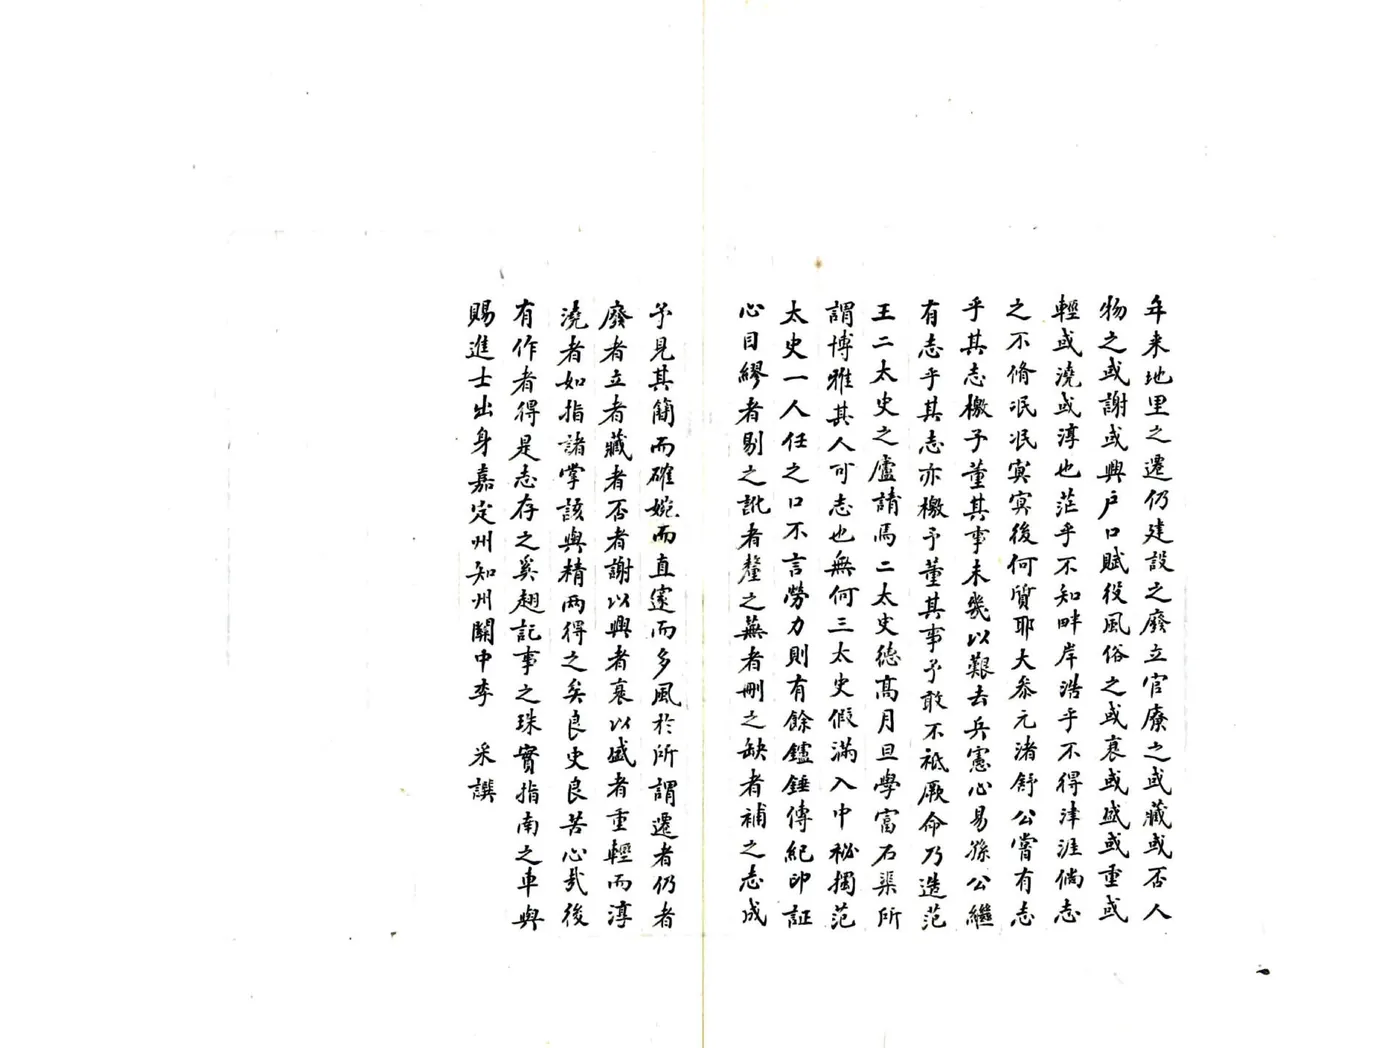 年来地里之遷仍建設之廢立官廨之或藏或否人
物之或謝或興户口賦役風俗之或衰或盛或重或
輕或澆或淳也茫乎不知畔岸浩乎不得津涯倘志
之不脩泯泯冥冥後何質耶大叅元渚舒公嘗有志
乎其志檄予董其事未幾以艱去兵憲心易孫公繼
有志乎其志亦檄予董其事予敢不祗厥命乃造范
王二太史之廬請焉二太史德高月旦學富石渠所
謂博雅其人可志也無何三太史假滿入中祕獨范
太史一人任之口不言勞力則有餘鑪錘傳紀印証
心目繆者剔之訛者釐之蕪者刪之缺者補之志成
予見其簡而確婉而直邃而多風於所謂遷者仍者
廢者立者藏者否者謝以興者衰以盛者重輕而淳
澆者如指諸掌該與精两得之矣良史良苦心㢤後
有作者得是志存之奚趐記事之珠實指南之車與
賜進士出身嘉定州知州關中李　采譔